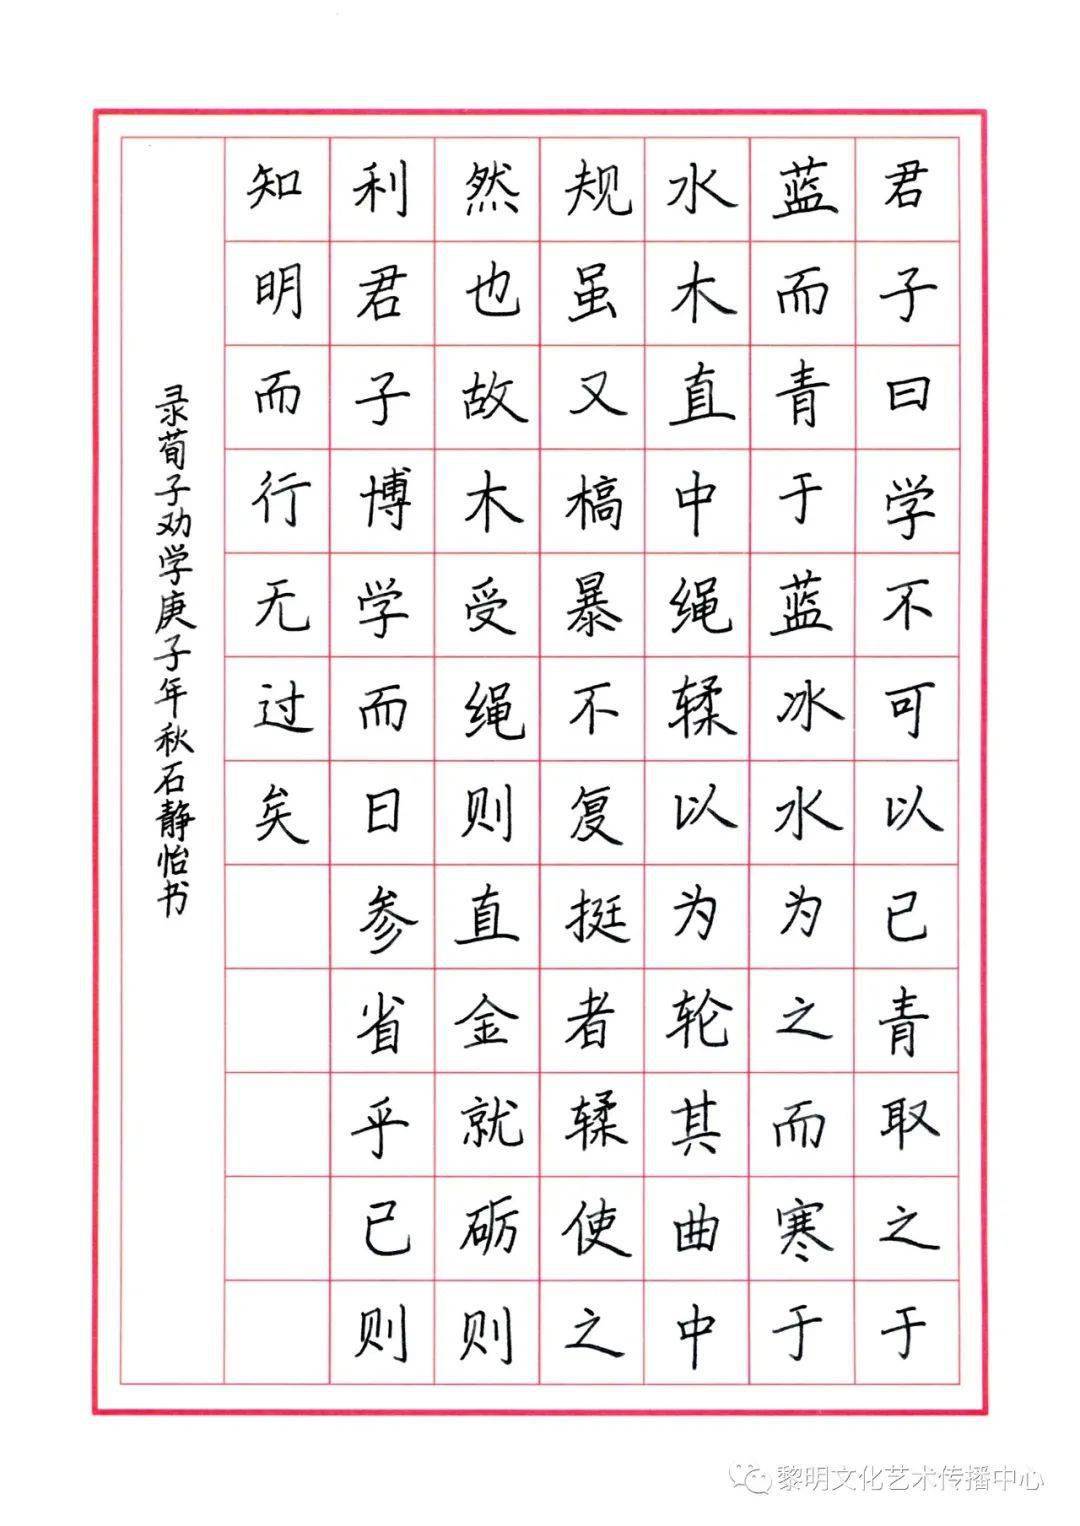 君子曰学不可以已青取之于
蓝而青于蓝冰水为之而寒于
水木直中绳𫐓以为轮其曲中
规虽又槁暴不复挺者𫐓使之
然也故木受绳则直金就砺则
利君子博学而日参省乎已则
知明而行无过矣
录荀子劝学庚子年秋石静怡书
黎明文化艺术传播中心